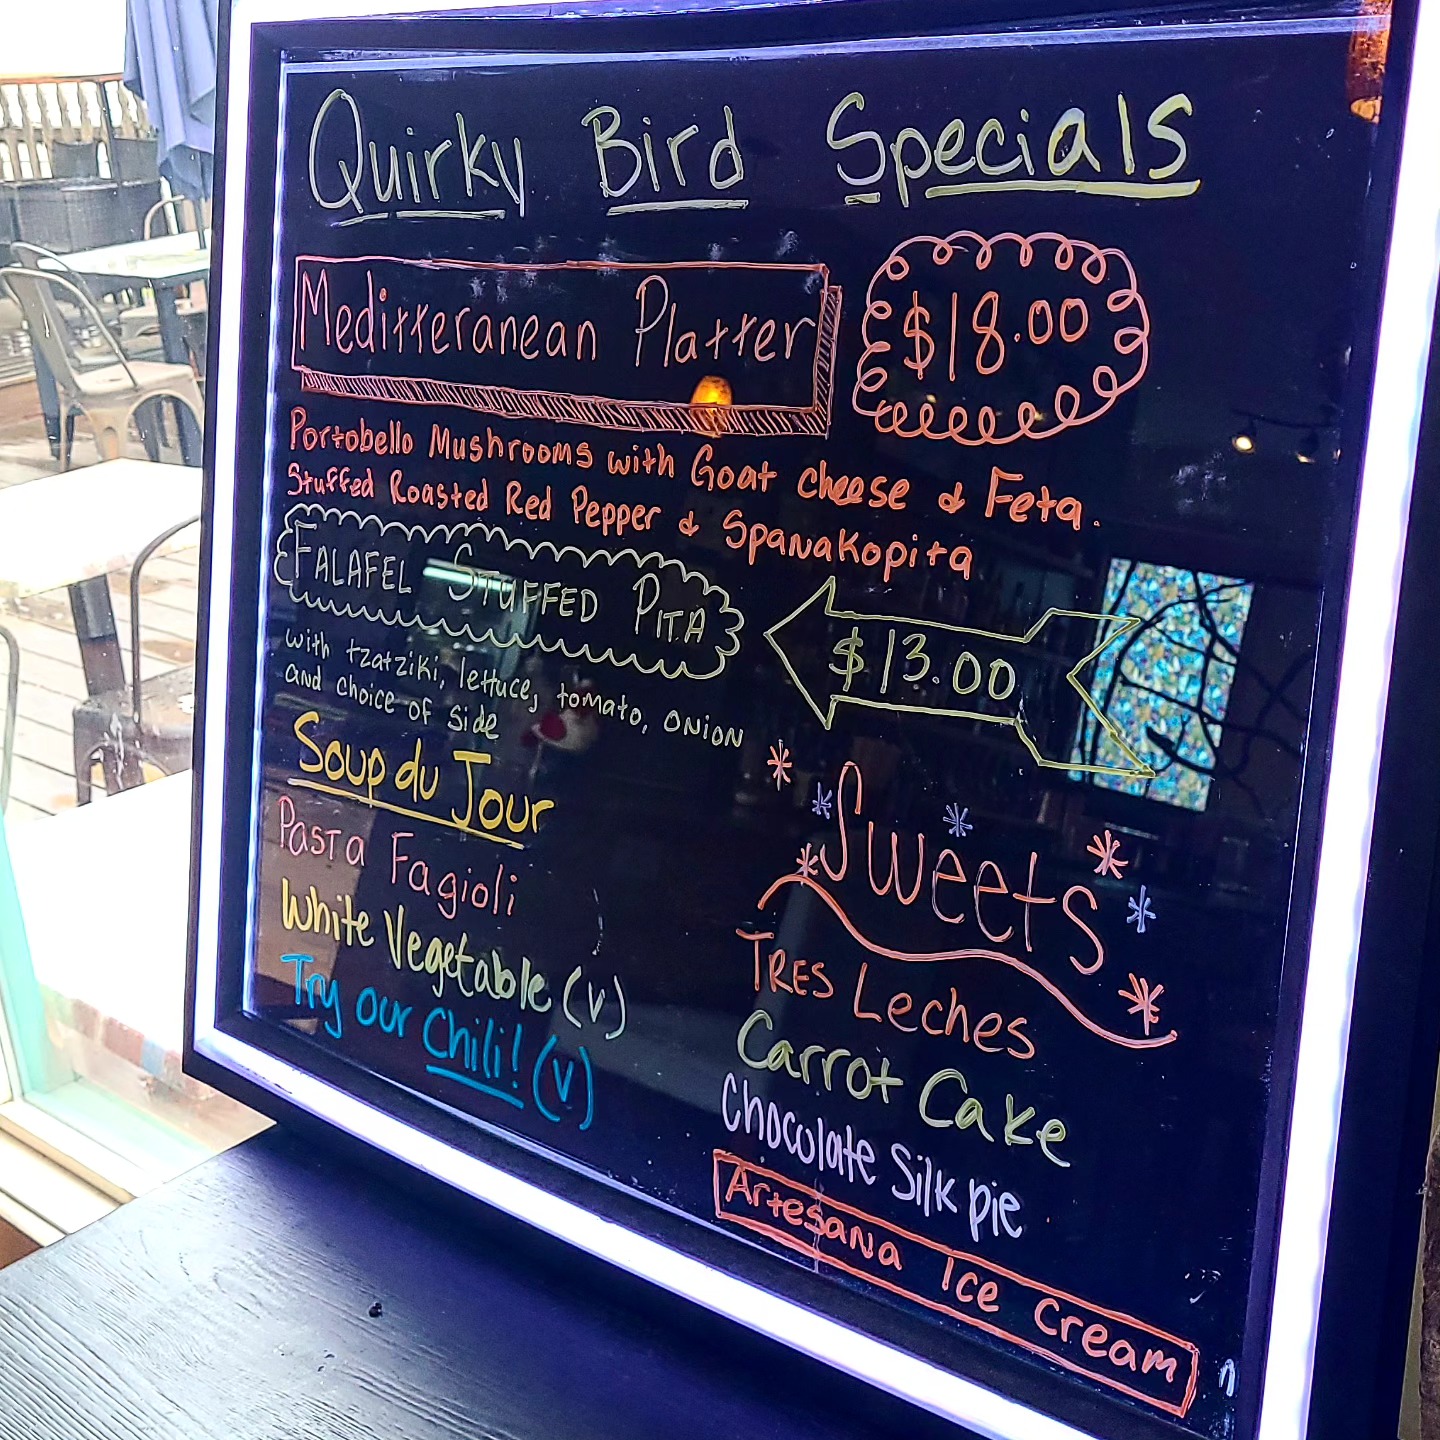 Quirky Bird Specials
Meditteranean Platter
$18.00
Portobello Mushrooms with Goat cheese & Feta.
Stuffed Roasted Red Pepper & Spanakopita
FALAFEL STUFFED PITA
$13.00
with tzatziki, lettuce, tomato, onion
and choice of side
Soup du Jour
Pasta Fagioli
White Vegetable (v)
Try our Chili! (v)
Sweets
TRES Leches
Carrot Cake
Chocolate Silk pie
Artesana Ice Cream